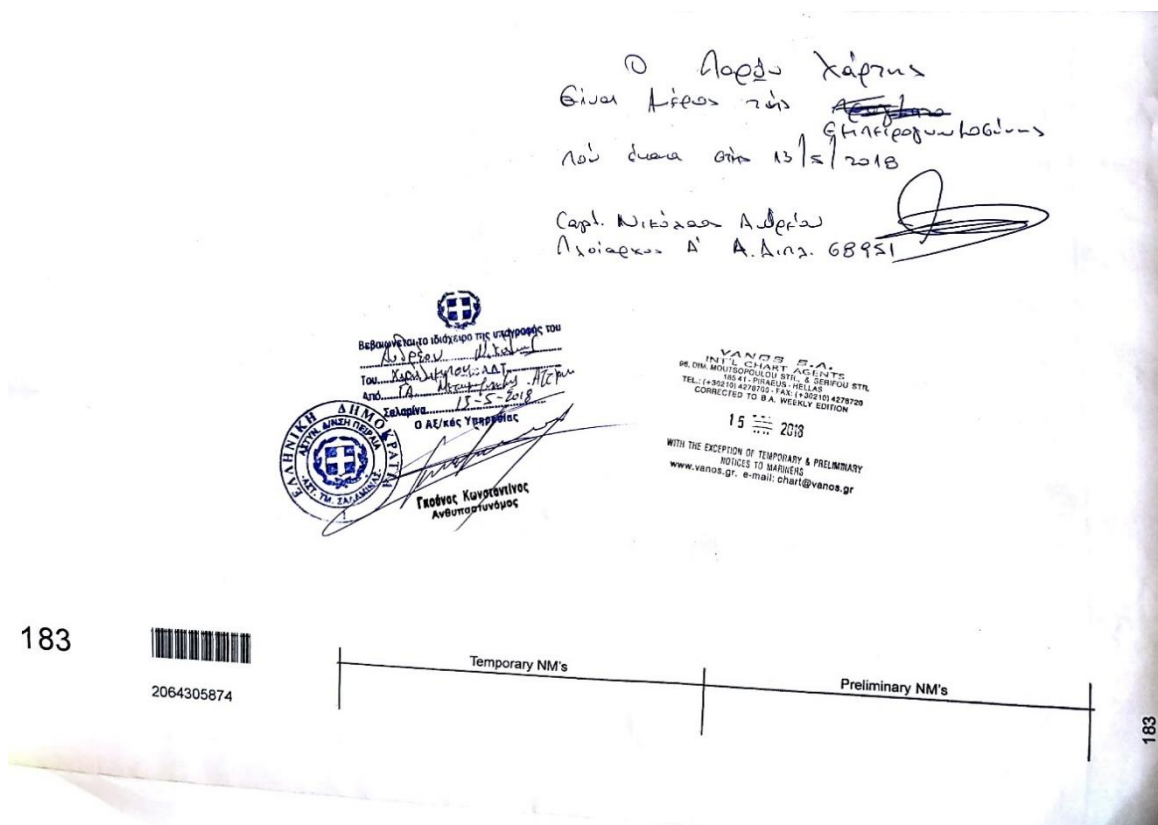 Ο παρών χάρτης
Είναι μέρος της
Εμπειρογνωμοσύνης
πού έκανα στις 13/5/2018
Capt. Νικόλαος Ανδρέου
Πλοίαρχος Α' Α. Διπλ. 68951
Βεβαιώνεται το ιδιόχειρο της υπογραφής του
Ανδρέου Νικόλαος
Του
Από ΤΑ
Σαλαμίνα 13-5-2018
Ο Αξ/κός Υπηρεσίας
ΕΛΛΗΝΙΚΗ ΔΗΜΟΚΡΑΤΙΑ
ΑΣΤΥΝ. Δ/ΝΣΗ ΠΕΙΡΑΙΑ
ΑΣΤ. ΤΜ. ΣΑΛΑΜΙΝΑΣ
Γκούνος Κωνσταντίνος
Ανθυπαστυνόμος
VANOS S.A.
INT'L CHART AGENTS
96, DIM. MOUTSOPOULOU STR., & SERIFOU STR,
185 41 - PIRAEUS - HELLAS
TEL.: (+30210) 4278700 - FAX: (+30210) 4278720
CORRECTED TO B.A. WEEKLY EDITION
15 2018
WITH THE EXCEPTION OF TEMPORARY & PRELIMINARY
NOTICES TO MARINERS
www.vanos.gr, e-mail: chart@vanos.gr
183
2064305874
Temporary NM's
Preliminary NM's
183